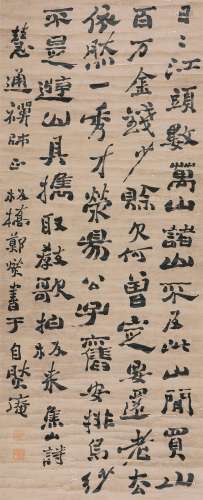 日〻江頭數萬山諸山不及此山閒買山
百万金錢少賒欠何曾定要還老去
依然一秀才滎陽公子舊安排烏紗
不是遊山具攜取教歌拍板來焦山詩
慧通禪師正板橋鄭燮書于自然庵